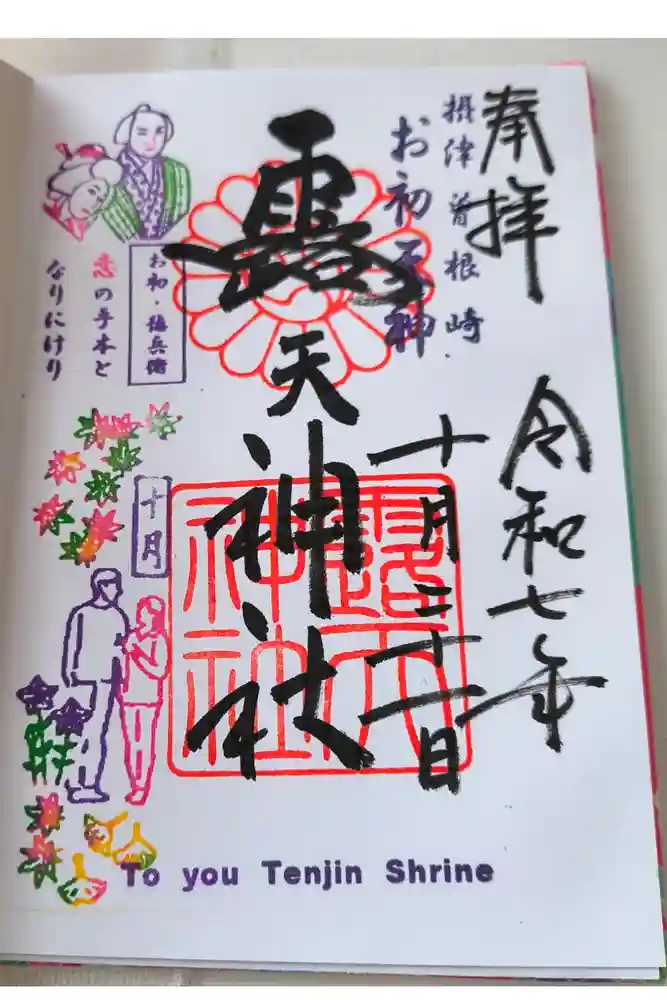 奉拝
令和七年
摂津曽根崎
お初天神
十月二十一日
露天神社
露天
神社
お初・徳兵衛
恋の手本と
なりにけり
十月
To you Tenjin Shrine